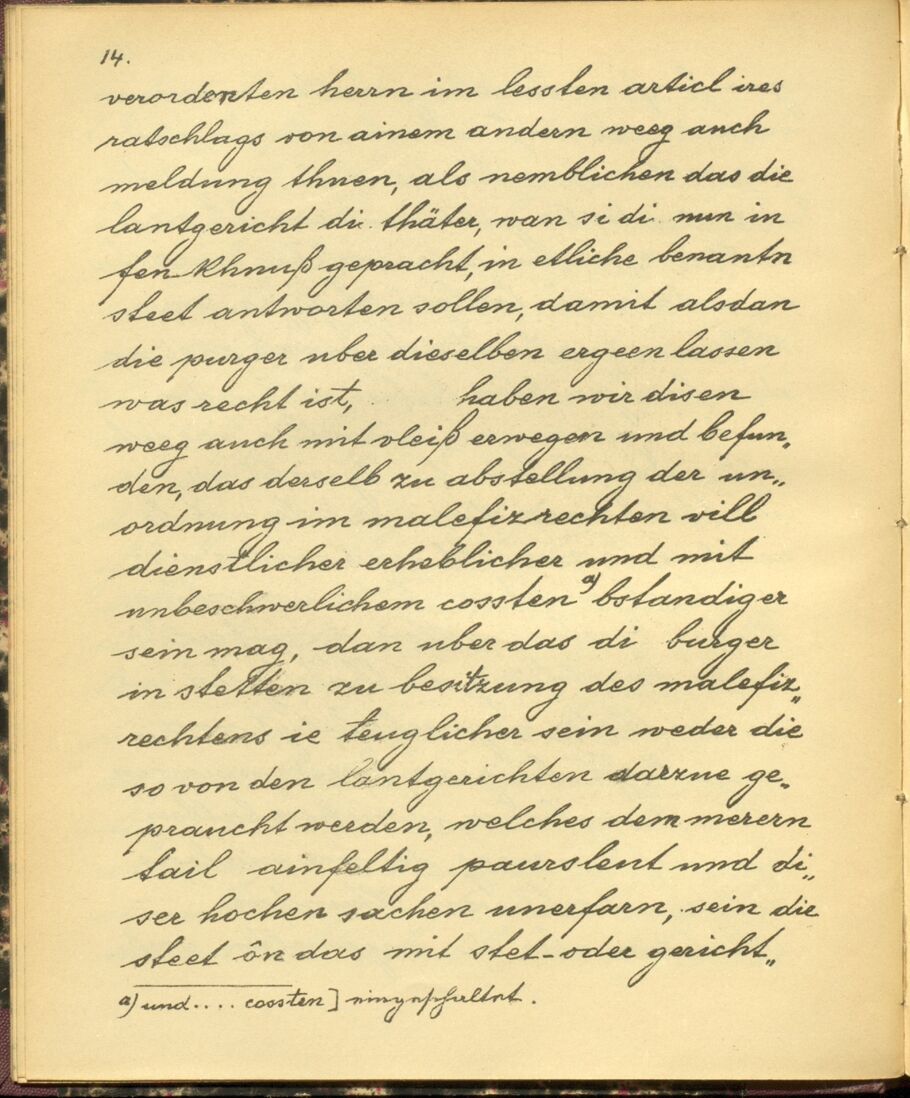 14.
verordenten herrn im lessten articl ires
ratschlags von ainem andern weeg auch
meldung thuen, als nemblichen das die
lantgericht di thäter, wan si di nun in
fen-khnuß gepracht, in etliche benantn
steet antworten sollen, damit alsdan
die purger uber dieselben ergeen lassen
was recht ist, haben wir disen
weeg auch mit vleiß erwegen und befun„
den, das derselb zu abstellung der un„
ordnung im malefizrechten vill
dienstlicher erheblicher und mit
unbeschwerlichem cossten a) bstandiger
sein mag, dan uber das di burger
in stetten zu besitzung des malefiz„
rechtens ie teuglicher sein weder die
so von den lantgerichten darzue ge„
praucht werden, welches dem merern
tail ainfeltig paursleut und di„
ser hochen sachen unerfarn, sein die
steet ôn das mit stet-oder gericht„
a) und.... cossten] eingeschaltet.